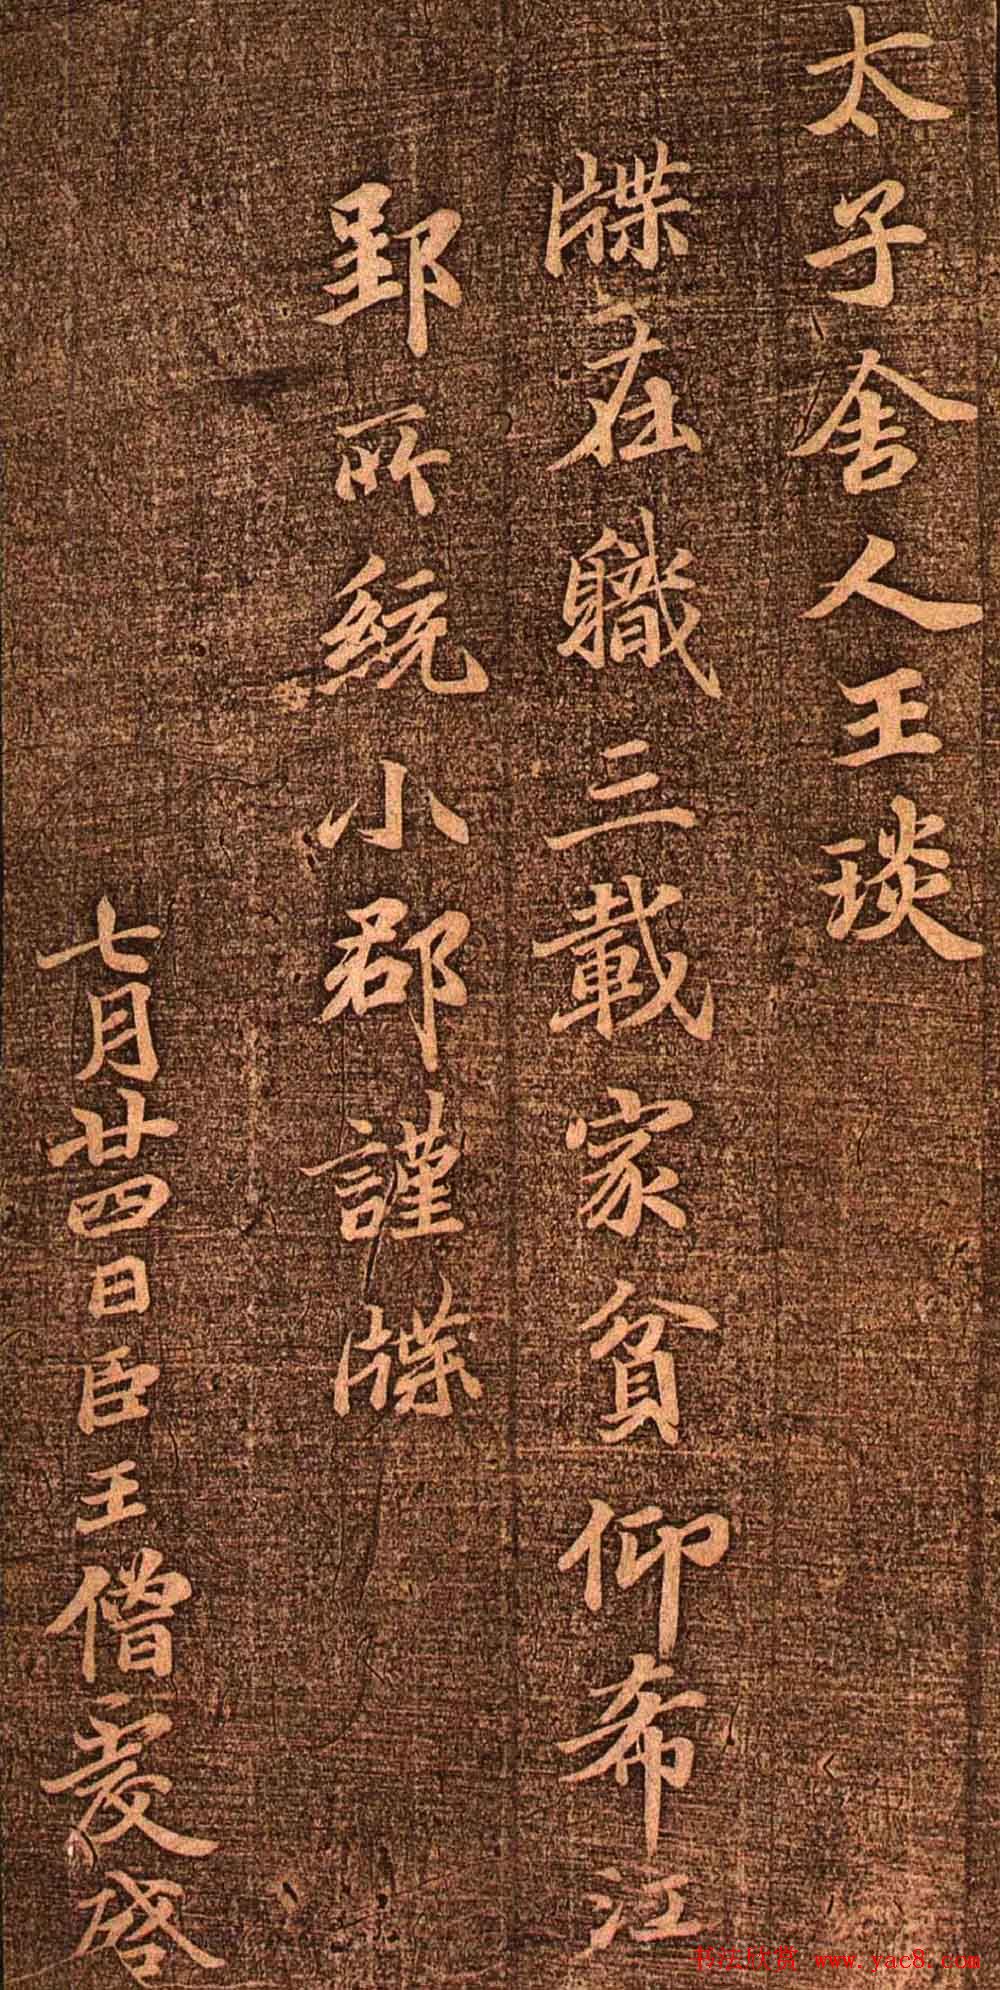 太子舍人王琰
牒在職三載家貧仰希江
郢所統小郡謹牒
七月廿四日臣王僧虔啓
书法欣赏 www.yac8.com